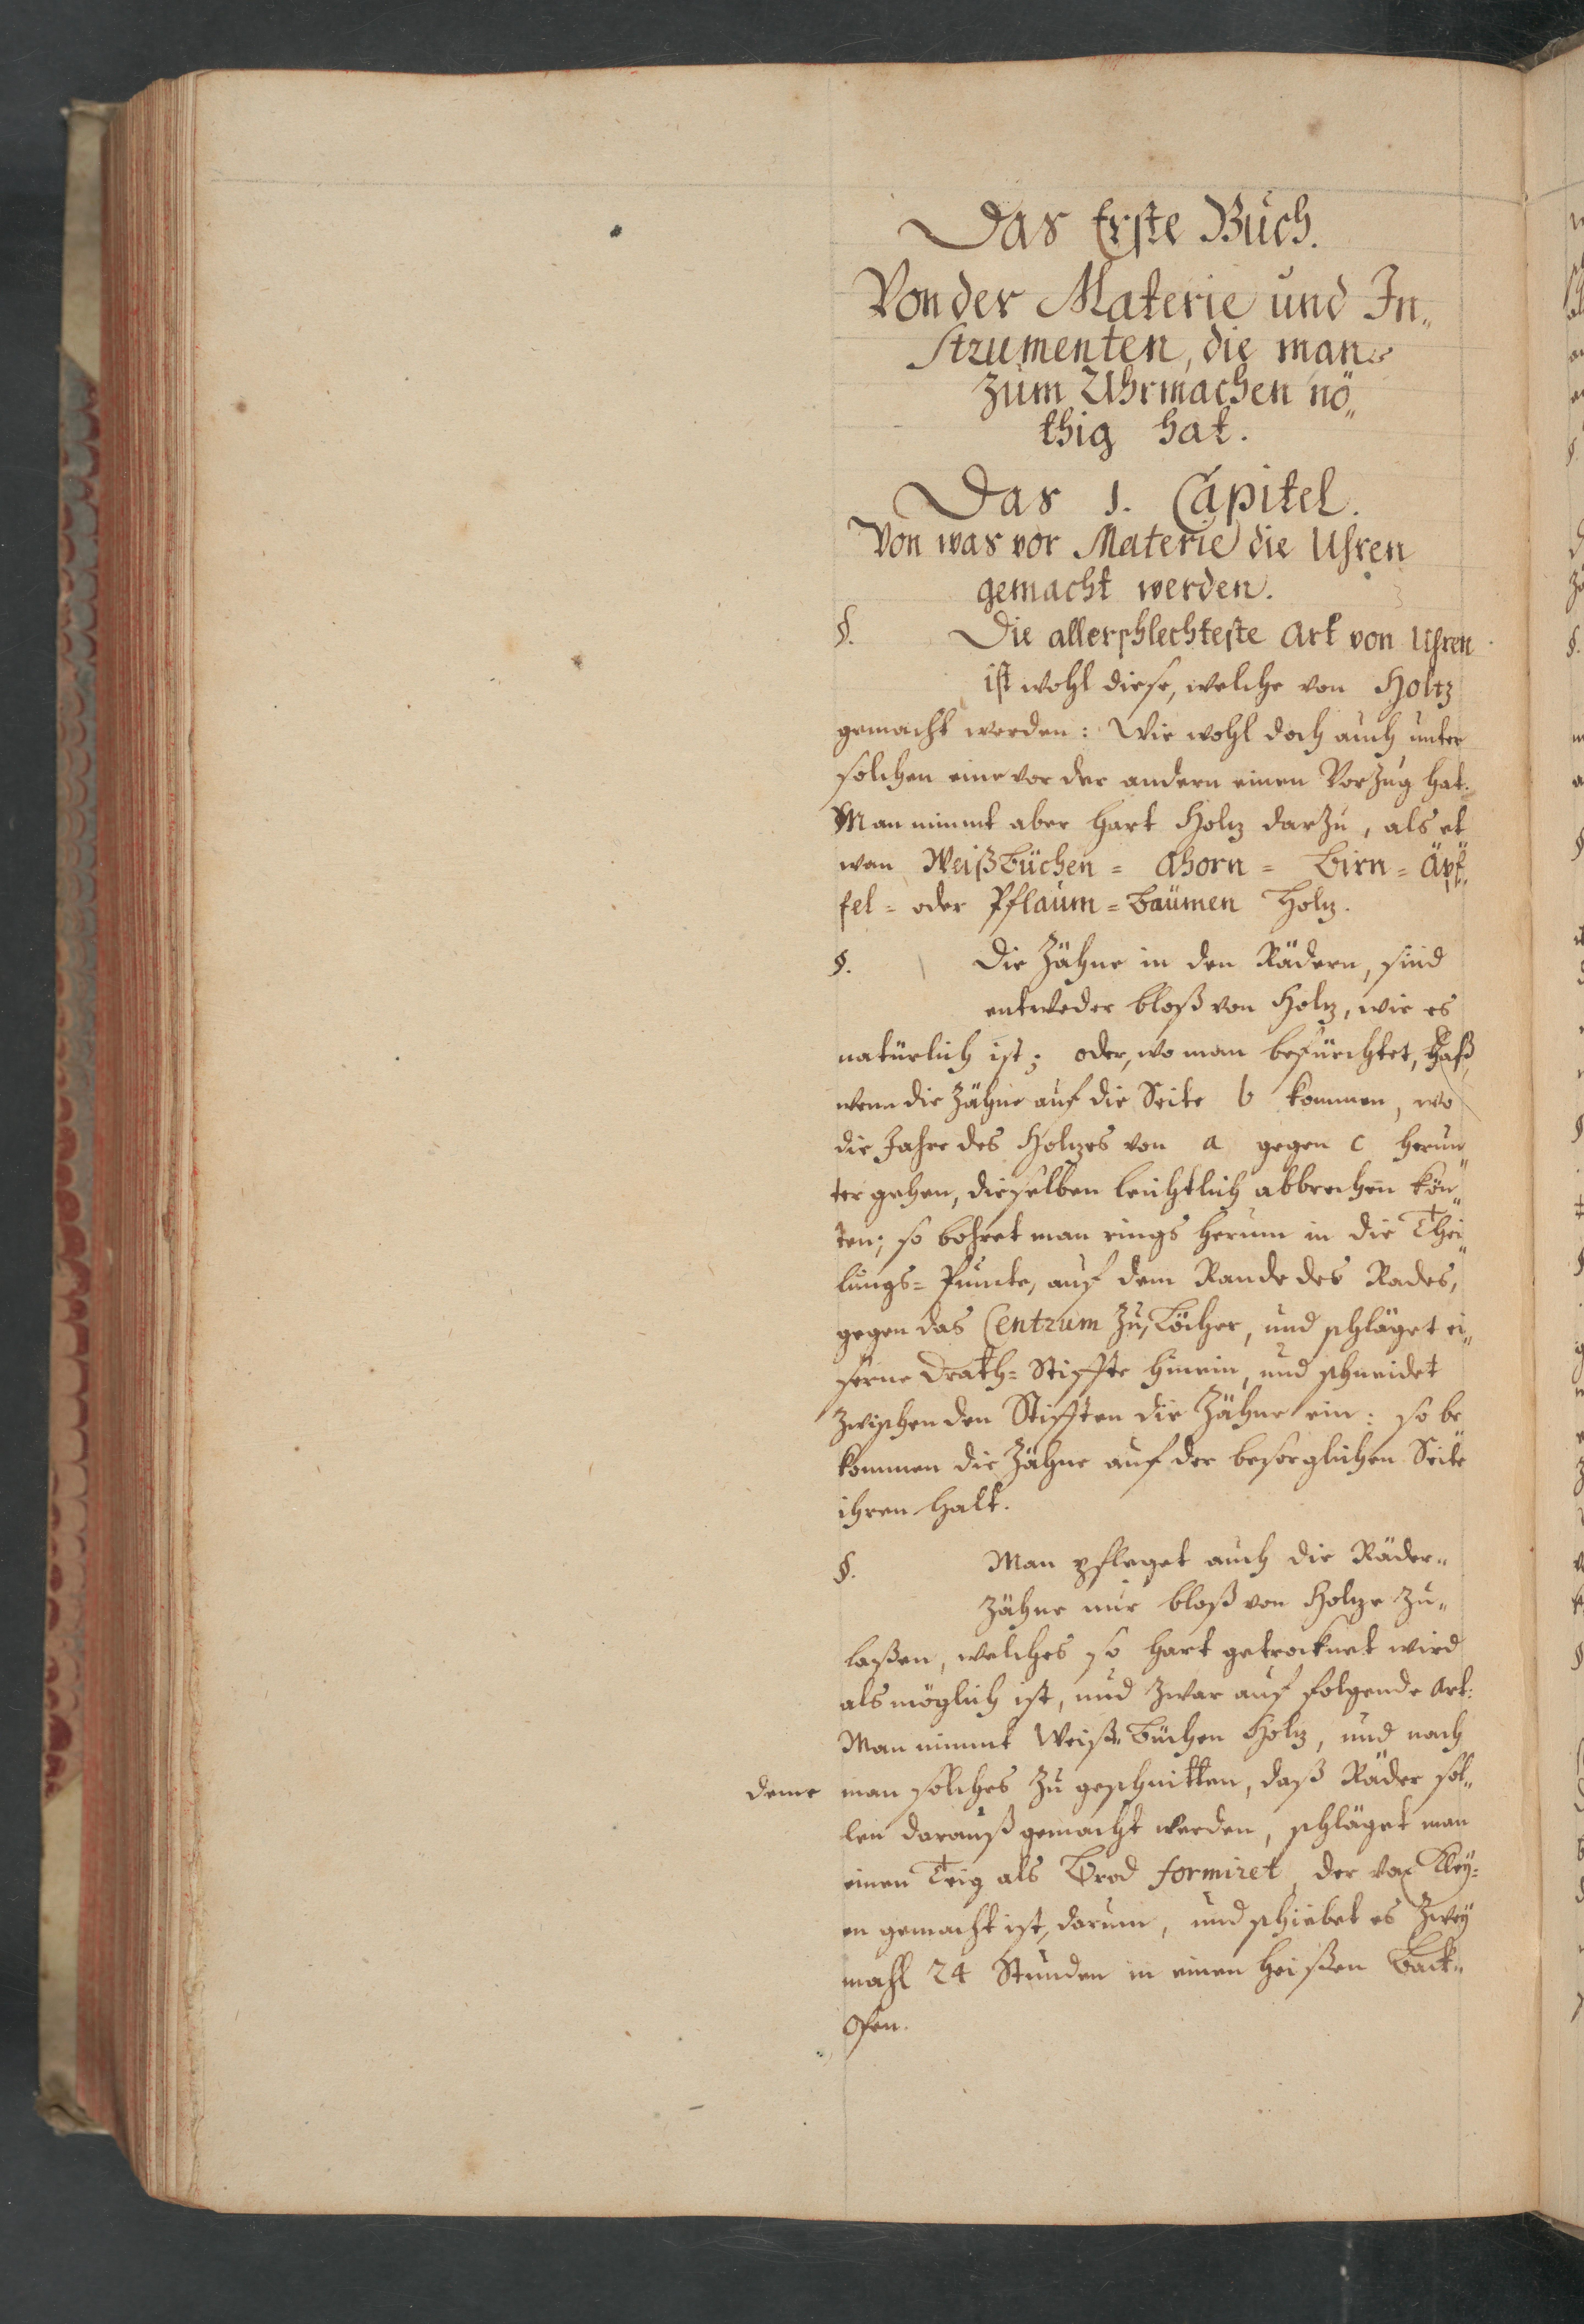 Das Erste Buch.
Von der Materie und In„
strumenten, die man
zum Uhrmachen nö„
thig hat.
Das 1. Capitel.
Von was vor Materie die Uhren
gemacht werden.
§. Die allerschlechteste Art von Uhren
ist wohl diese, welche von Holtz
gemacht werden: Wie wohl doch auch unter
solchen eine vor der andern einen Vorzug hat.
Man nimmt aber hart Holtz darzu, als et„
wan Weißbüchen= Ahorn= Birn= Äpf„
fel= oder Pflaum=Bäumen Holtz.
§. Die Zähne in den Rädern, sind
entweder bloß von Holtz, wie es
natürlich ist; oder, wo man befürchtet, daß,
wenn die Zähne auf die Seite b kommen, wo
die Jahre des Holtzes von a gegen c herun„
ter gehen, dieselben leichtlich abbrechen kön„
ten; so bohret man rings herum in die Thei„
lungs=Puncte, auf dem Rande des Rades,
gegen das Centrum zu, Löcher, und schläget ei„
serne Drath=Stiffte hinein, und schneidet
zwischen den Stifften die Zähne ein: so be„
kommen die Zähne auf der besorglichen Seite
ihren Halt.
§. Man pfleget auch die Räder„
Zähne nur bloß von Holtze zu„
laßen, welches so hart getrocknet wird
als möglich ist, und zwar auf folgende Art:
Man nimmt Weiß„Büchen Holtz, und nach
deme man solches zu geschnitten, daß Räder sol„
len darauß gemacht werden, schläget man
einen Teig als Brod formiret, der von Kley=
en gemacht ist, darum, und schiebet es zwey
mahl 24 Stunden in einen heißen Back„
Ofen.